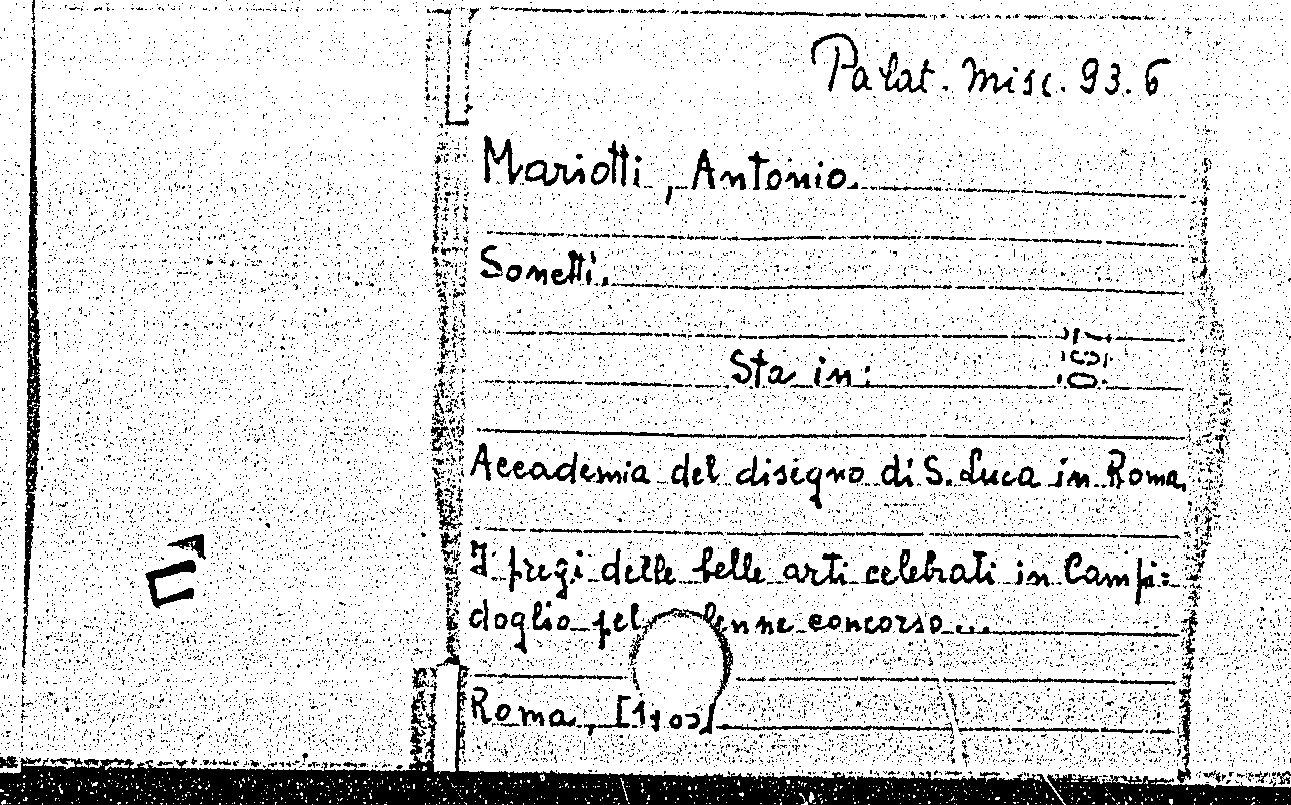 Palat. Misc. 93. 6
Mariotti, Antonio.
Sonetti.
Sta in:
Accademia del disegno di S. Luca in Roma.
I pregi delle belle arti celebrati in Campi=
doglio pel lenne concorso...
Roma,